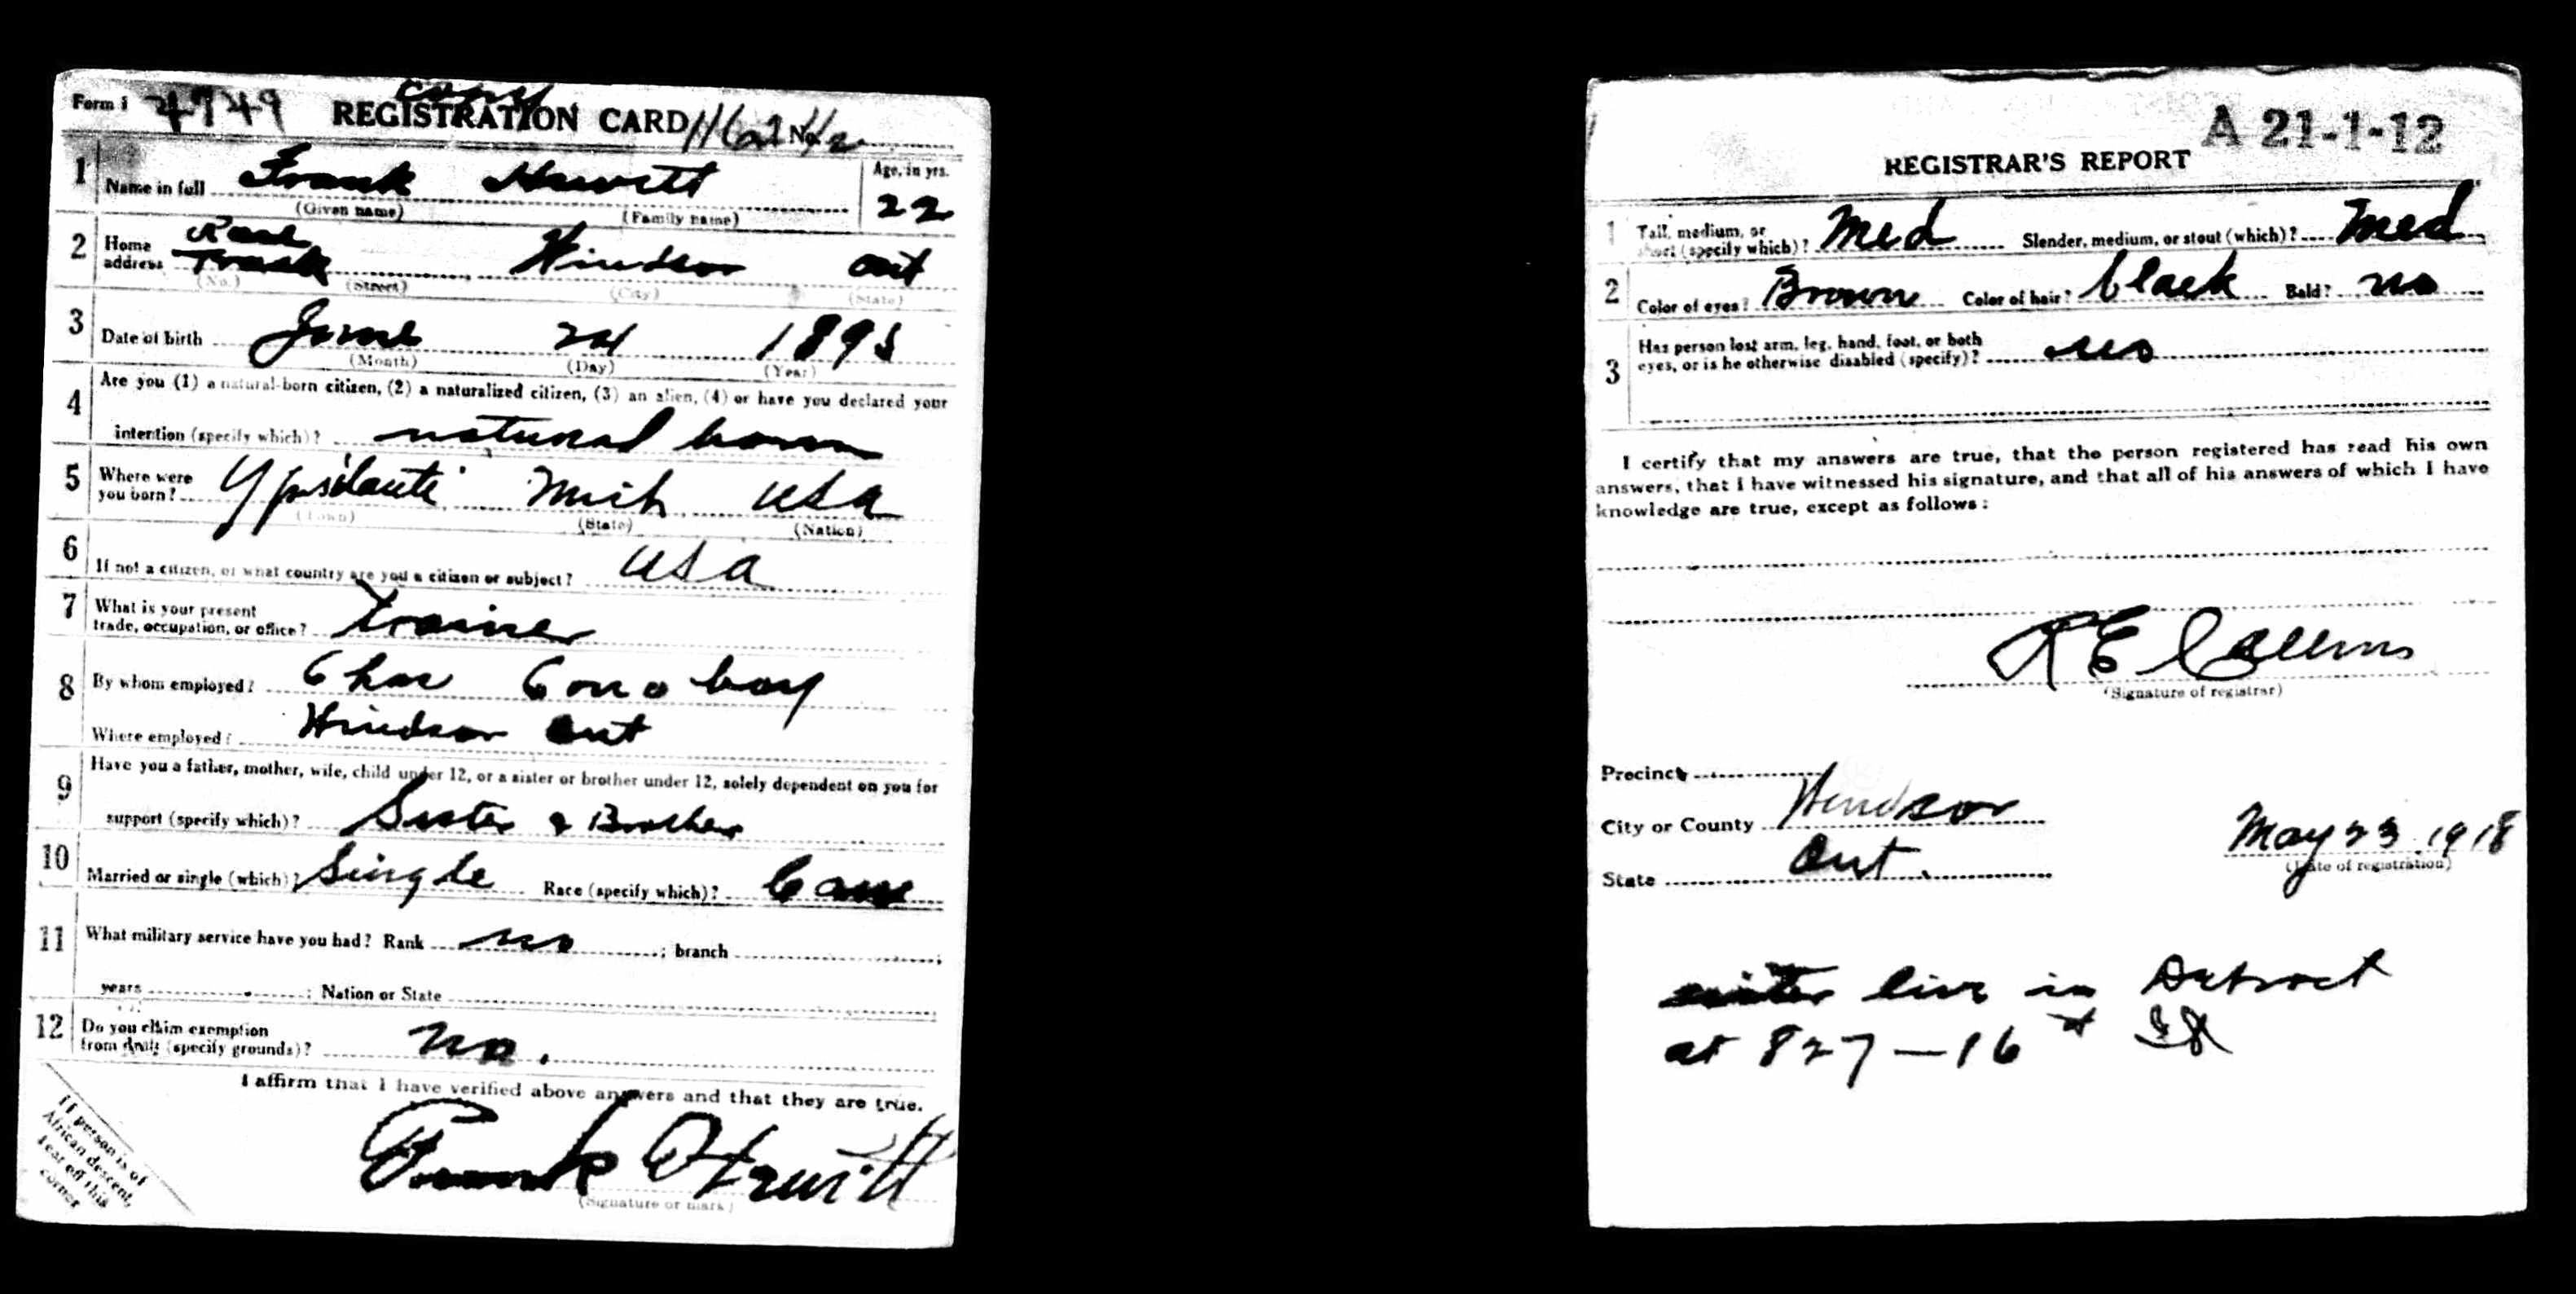 Form 1 4749 REGISTRATION CARD No.
copy
1 Name in full Frank Hewitt Age, in yrs. 22
(Given name) (Family name)
2 Home address Race Track Windsor Ont
(No.) (Street) (City) (State)
3 Date of birth June 24 1895
(Month) (Day) (Year)
4 Are you (1) a natural-born citizen, (2) a naturalized citizen, (3) an alien, (4) or have you declared your
intention (specify which)? natural born
5 Where were you born? Ypsilanti Mich USA
(Town) (State) (Nation)
6 If not a citizen, of what country are you a citizen or subject? USA
7 What is your present trade, occupation, or office? Trainer
8 By whom employed? Chas Conoboy
Where employed? Windsor Ont
9 Have you a father, mother, wife, child under 12, or a sister or brother under 12, solely dependent on you for
support (specify which)? Sister & Brother
10 Married or single (which)? Single Race (specify which)? Cau
11 What military service have you had? Rank no ; branch ;
years ; Nation or State
12 Do you claim exemption from draft (specify grounds)? no.
I affirm that I have verified above answers and that they are true.
Frank Hewitt
(Signature or mark)
If person is of
African descent,
tear off this
corner
A 21-1-12
REGISTRAR'S REPORT
1 Tall, medium, or short (specify which)? Med Slender, medium, or stout (which)? Med
2 Color of eyes? Brown Color of hair? black Bald? no
3 Has person lost arm, leg, hand, foot, or both
eyes, or is he otherwise disabled (specify)? no
I certify that my answers are true, that the person registered has read his own
answers, that I have witnessed his signature, and that all of his answers of which I have
knowledge are true, except as follows:
R E Collins
(Signature of registrar)
Precinct
City or County Windsor
State Ont.
May 23 1918
(Date of registration)
sister live in Detroit
at 827-16 St